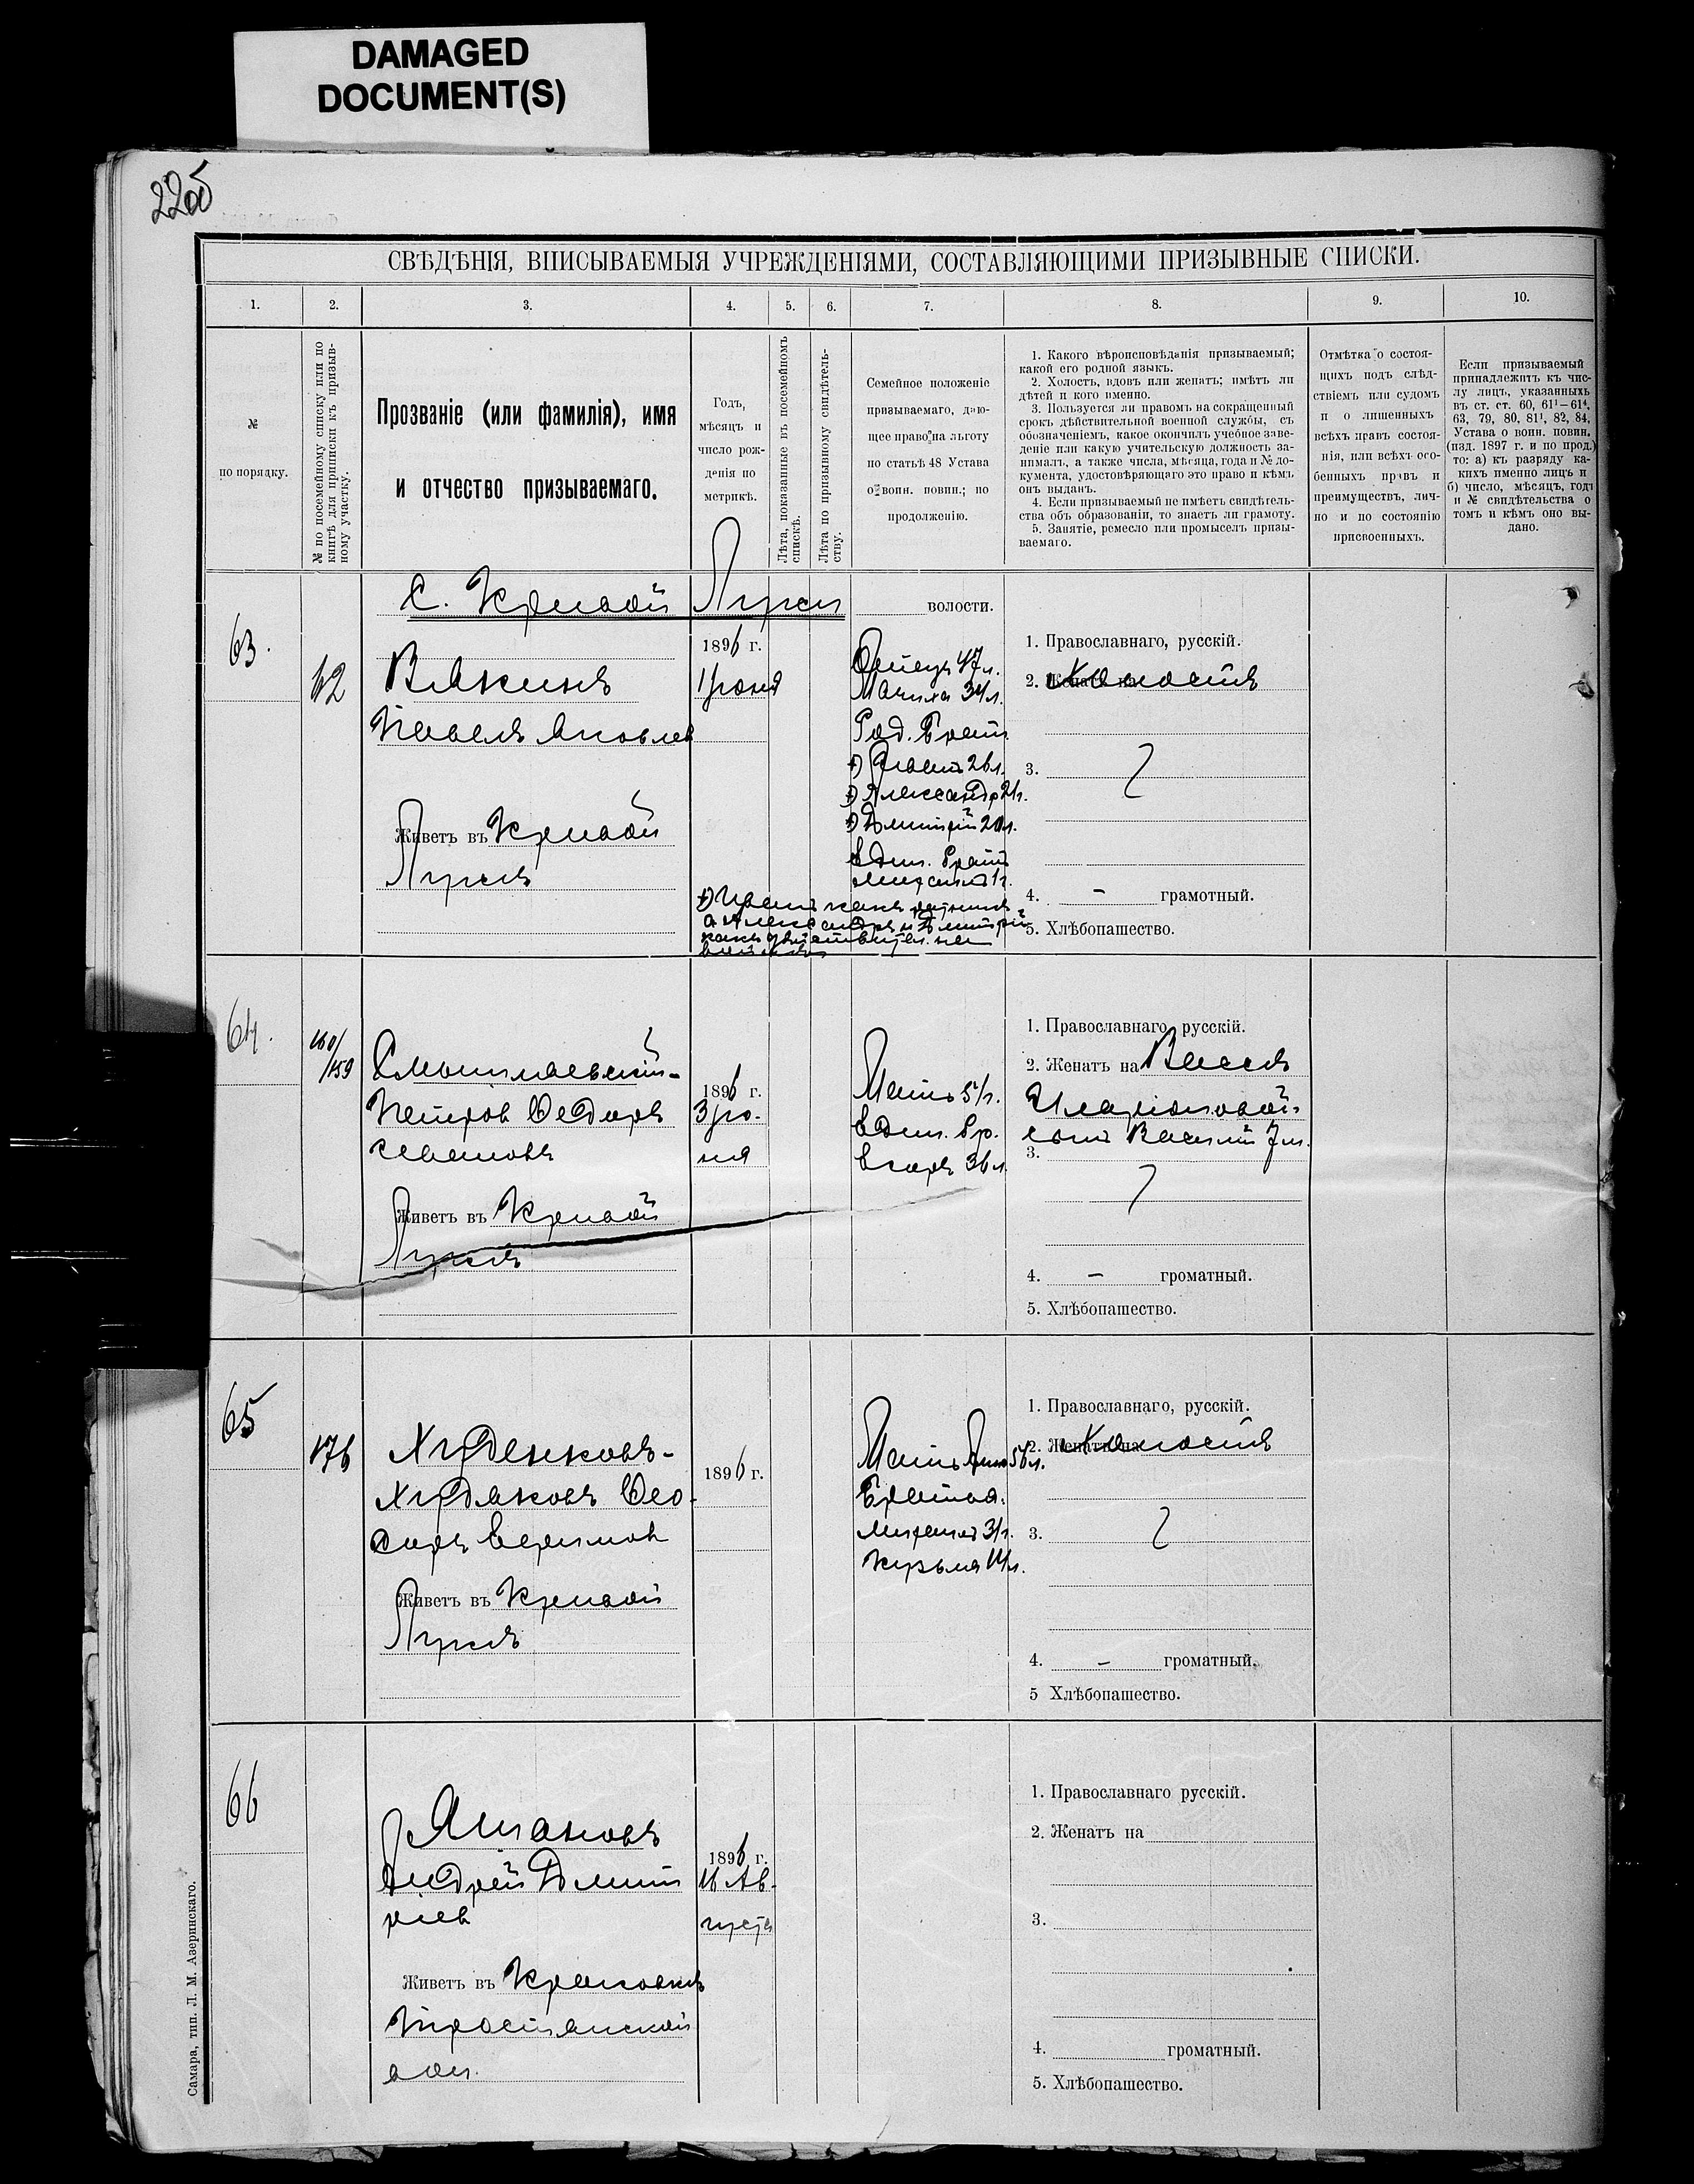 DAMAGED
DOCUMENT(S)
22об
СВѢДѢНІЯ, ВПИСЫВАЕМЫЯ УЧРЕЖДЕНІЯМИ, СОСТАВЛЯЮЩИМИ ПРИЗЫВНЫЕ СПИСКИ.
1. 2. 3. 4. 5. 6. 7. 8. 9. 10.
№
по порядку.
№ по посемейному списку или по
книгѣ для приписки къ призыв-
ному участку.
Прозваніе (или фамилія), имя
и отчество призываемаго.
Годъ,
мѣсяцъ и
число рож-
денія по
метрикѣ.
Лѣта, показанные въ посемейномъ
спискѣ.
Лѣта по призывному свидѣтель-
ству.
Семейное положеніе
призываемаго, даю-
щее право на льготу
по статьѣ 48 Устава
о воин. повин.; по
продолженію.
1. Какого вѣроисповѣданія призываемый;
какой его родной языкъ.
2. Холостъ, вдовъ или женатъ; имѣтъ ли
дѣтей и кого именно.
3. Пользуется ли правомъ на сокращенный
срокъ дѣйствительной военной службы, съ
обозначеніемъ, какое окончилъ учебное заве-
деніе или какую учительскую должность за-
нималъ, а также числа, мѣсяца, года и № до-
кумента, удостовѣряющаго это право и кѣмъ
онъ выданъ.
4. Если призываемый не имѣетъ свидѣтель-
ства объ образованіи, то знаетъ ли грамоту.
5. Занятіе, ремесло или промыселъ призы-
ваемаго.
Отмѣтка о состоя-
щихъ подъ слѣд-
ствіемъ или судомъ
и о лишенныхъ
всѣхъ правъ состоя-
нія, или всѣхъ осо-
бенныхъ правъ и
преимуществъ, лич-
но и по состоянію
присвоенныхъ.
Если призываемый
принадлежитъ къ чис-
лу лицъ, указанныхъ
въ ст. ст. 60, 61¹—61⁴,
63, 79, 80, 81¹, 82, 84,
Устава о воин. повин.
(изд. 1897 г. и по прод.)
то: а) къ разряду ка-
кихъ именно лицъ и
б) число, мѣсяцъ, годъ
и № свидѣтельства о
томъ и кѣмъ оно вы-
дано.
С. Кривой Луки волости.
63.
42
Вякинъ
Павелъ Яковлев
Живетъ въ Кривой
Лукѣ
1896 г.
1 Июня
Отецъ 47 л.
Мачиха 34 л.
Род. Брат.
+) Иванъ 26 л.
+) Александр 21 г.
+) Дмитрій 20 л.
един. Братъ
Михаилъ 1 г.
1. Православнаго, русскій.
2. Холостъ
3.
4. – грамотный.
5. Хлѣбопашество.
64.
160/159
Смышляевскій-
Петров Ѳедоръ
Живетъ въ Кривой
Лукѣ
1896 г.
3 Ию-
ня
Мать 51 г.
един. бр.
Егоръ 36 л.
1. Православнаго, русскій.
2. Женатъ на Вассѣ
Иларіоновой.
сынъ Василій
3.
4. – громатный.
5. Хлѣбопашество.
65
176
Худенковъ-
Худяковъ Ѳео-
Живетъ въ Кривой
Лукѣ
1896 г.
Мать Анна 56 л.
Братья.
Михаилъ 31 г.
Кузьма
1. Православнаго, русскій.
2. Холостъ
3.
4. – громатный.
5 Хлѣбопашество.
66
Яшановъ
Андрей Дмит
ріев
Живетъ въ
вол.
1896 г.
16 Ав-
густа
1. Православнаго русскій.
2. Женатъ на
3.
4. громатный.
5. Хлѣбопашество.
Самара, тип. Л. М. Азеринскаго.